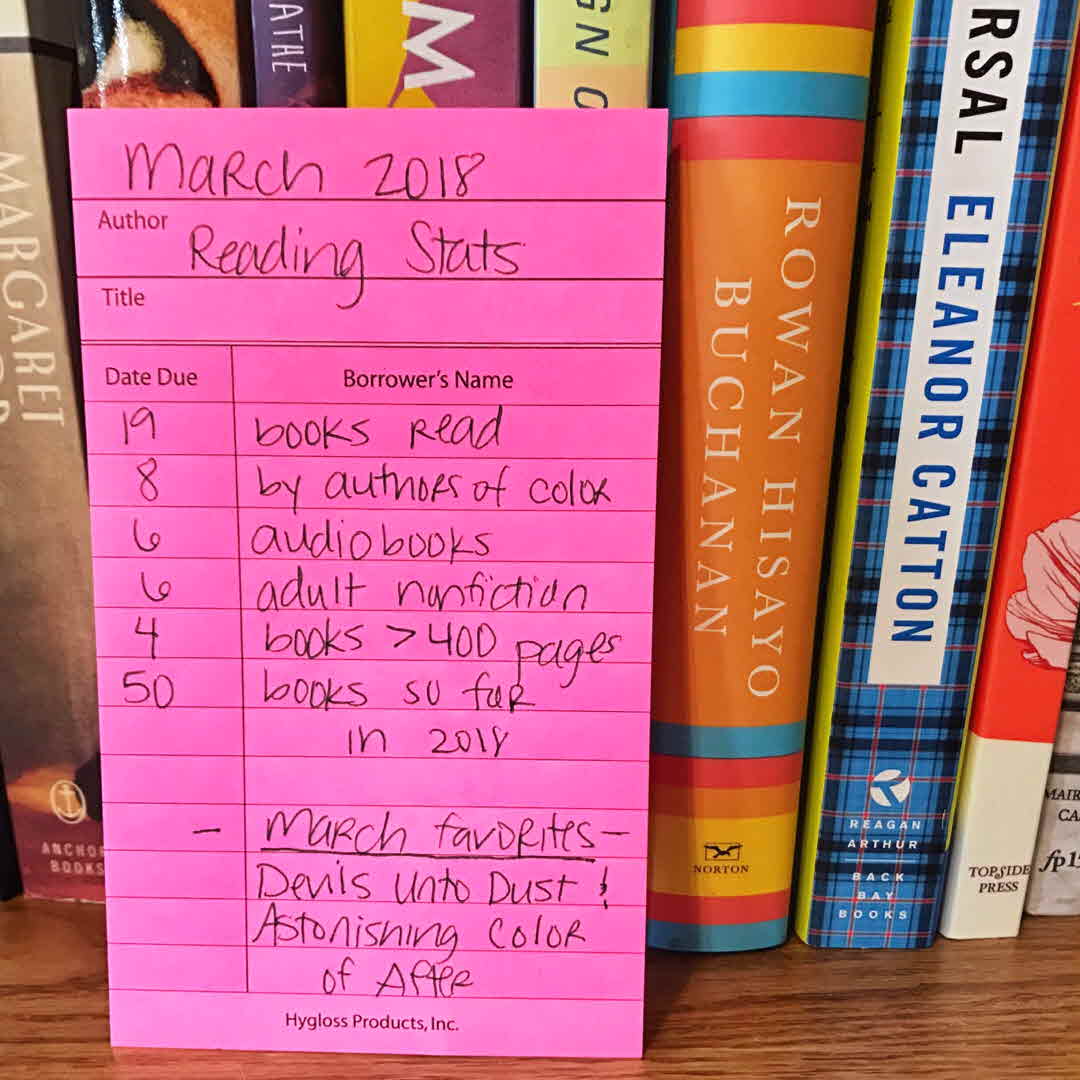 March 2018
Author
Reading Stats
Title
Date Due Borrower's Name
19 books read
8 by authors of color
6 audiobooks
6 adult nonfiction
4 books >400 pages
50 books so far
in 2018
- March favorites -
Devils Unto Dust &
Astonishing Color
of After
Hygloss Products, Inc.
MARGARET
ANCHOR
BOOKS
ATHE
M
GN O
ROWAN HISAYO
BUCHANAN
NORTON
RSAL ELEANOR CATTON
REAGAN
ARTHUR
BACK
BAY
BOOKS
TOPSIDE
PRESS
MAIR
CA
fp1